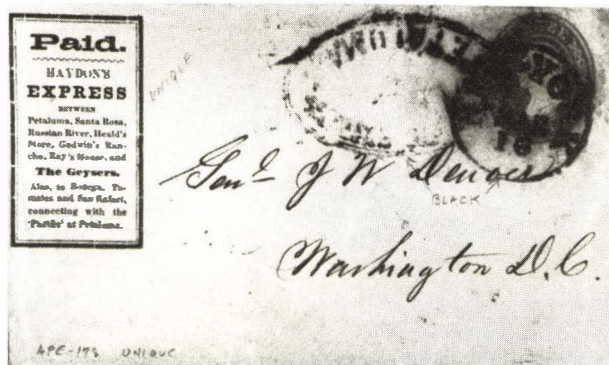 Paid.
HAYDON'S
EXPRESS
BETWEEN
Petaluma, Santa Rosa,
Russian River, Heald's
Store, Godwin's Ran-
cho, Ray's House, and
The Geysers.
Also, to Bodega, To-
males and San Rafael,
connecting with the
'Pacific' at Petaluma.
UNIQUE
PETALUMA
18
Genl J W Denver
BLACK
Washington D.C.
APE-173 UNIQUE